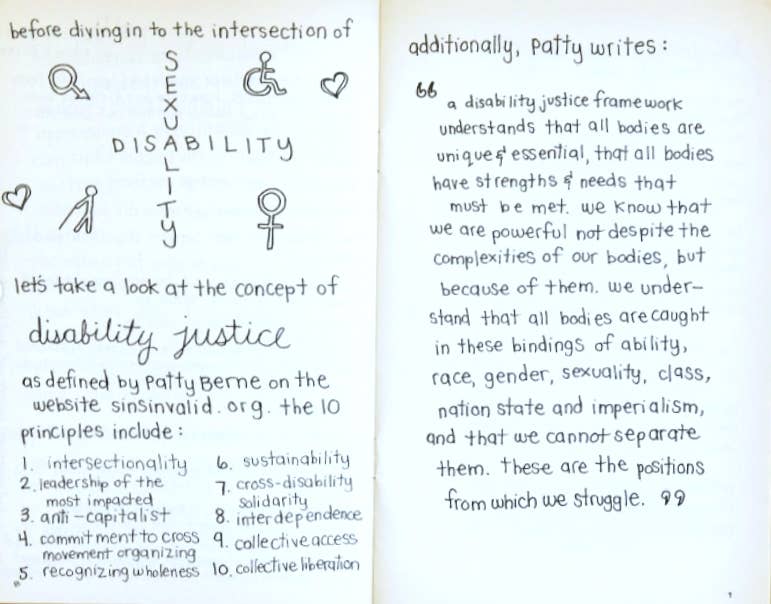 before diving in to the intersection of
SEXUALITY
DISABILITY
let's take a look at the concept of
disability justice
as defined by Patty Berne on the
website sinsinvalid.org. the 10
principles include:
1. intersectionality
2. leadership of the
most impacted
3. anti-capitalist
4. commitment to cross
movement organizing
5. recognizing wholeness
6. sustainability
7. cross-disability
solidarity
8. interdependence
9. collective access
10. collective liberation
additionally, Patty writes:
“a disability justice framework
understands that all bodies are
unique & essential, that all bodies
have strengths & needs that
must be met. we know that
we are powerful not despite the
complexities of our bodies, but
because of them. we under-
stand that all bodies are caught
in these bindings of ability,
race, gender, sexuality, class,
nation state and imperialism,
and that we cannot separate
them. these are the positions
from which we struggle.”